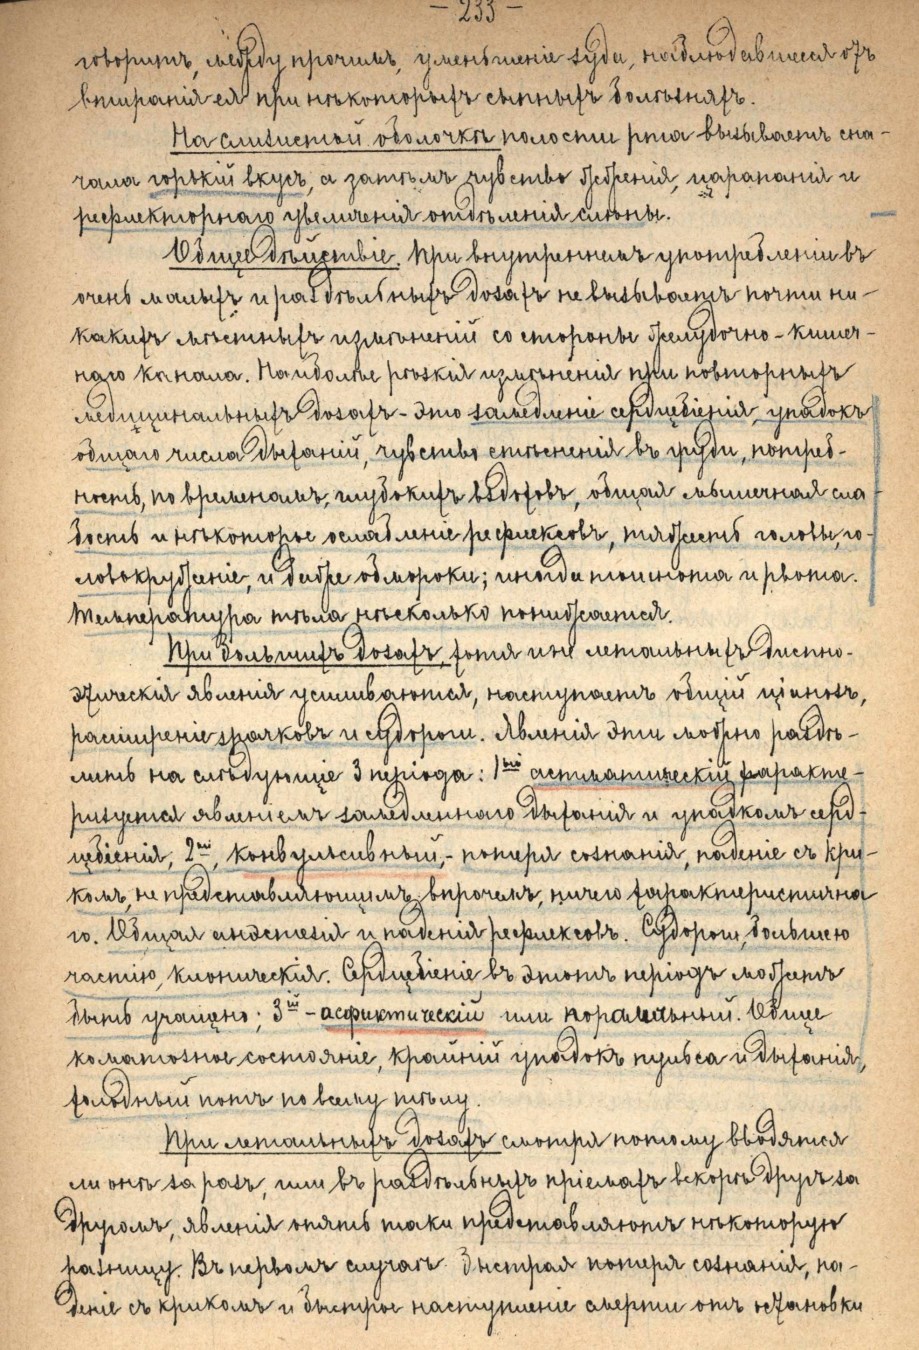 — 233 —
говоритъ, между прочимъ, уменьшеніе зуда, наблюдавшееся отъ
втиранія ея при нѣкоторыхъ сыпныхъ болѣзняхъ.
На слизистой оболочкѣ полости рта вызываетъ сна-
чала горькій вкусъ, а затѣмъ чувство жженія, царапанія и
рефлекторнаго увеличенія отдѣленія слюны.
Общее дѣйствіе. При внутреннемъ употребленіи въ
очень малыхъ и раздѣльныхъ дозахъ не вызываетъ почти ни-
какихъ мѣстныхъ измѣненій со стороны желудочно-кишеч-
наго канала. Наиболѣе рѣзкія измѣненія при повторныхъ
медицинальныхъ дозахъ - это замедленіе сердцебіенія, упадокъ
общаго числа дыханій, чувство стѣсненія въ груди, потреб-
ность, по временамъ, глубокихъ вздоховъ, общая мышечная сла-
бость и нѣкоторое ослабленіе рефлексовъ, тяжесть головы, го-
ловокруженіе, и даже обмороки; иногда тошнота и рвота.
Температура тѣла нѣсколько понижается.
При большихъ дозахъ, хотя и не летальныхъ диспно-
этическія явленія усиливаются, наступаетъ общій ціанозъ,
расширеніе зрачковъ и судороги. Явленія эти можно раздѣ-
лить на слѣдующіе 3 періода: 1ый астматическій характе-
ризуется явленіемъ замедленнаго дыханія и упадкомъ серд-
цебіенія, 2ый, конвульсивный, - потеря сознанія, паденіе съ кри-
комъ, не представляющимъ, впрочемъ, ничего характеристична-
го. Общая анэстезія и паденія рефлексовъ. Судороги, большею
частію, клоническія. Сердцебіеніе въ этотъ періодъ можетъ
быть учащено; 3ій - асфиктическій или параличный. Общее
коматозное состояніе, крайній упадокъ пульса и дыханія,
холодный потъ по всему тѣлу.
При летальныхъ дозахъ смотря потому вводятся
ли онѣ за разъ, или въ раздѣльныхъ пріемахъ вскорѣ другъ за
другомъ, явленія опять таки представляютъ нѣкоторую
разницу. Въ первомъ случаѣ быстрая потеря сознанія, па-
деніе съ крикомъ и быстрое наступленіе смерти отъ остановки